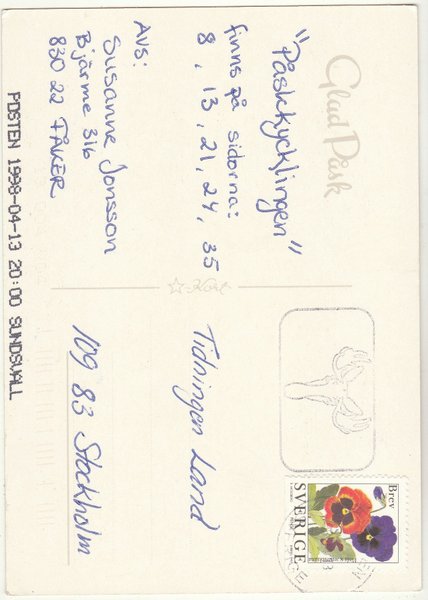 Glad Påsk
"Påskkycklingen"
finns på sidorna:
8, 13, 21, 24, 35
Avs:
Susanne Jonsson
Bjärme 316
830 22 FÅKER
POSTEN 1998-04-13 20:00 SUNDSVALL
Tidningen Land
109 83 Stockholm
Brev
SVERIGE